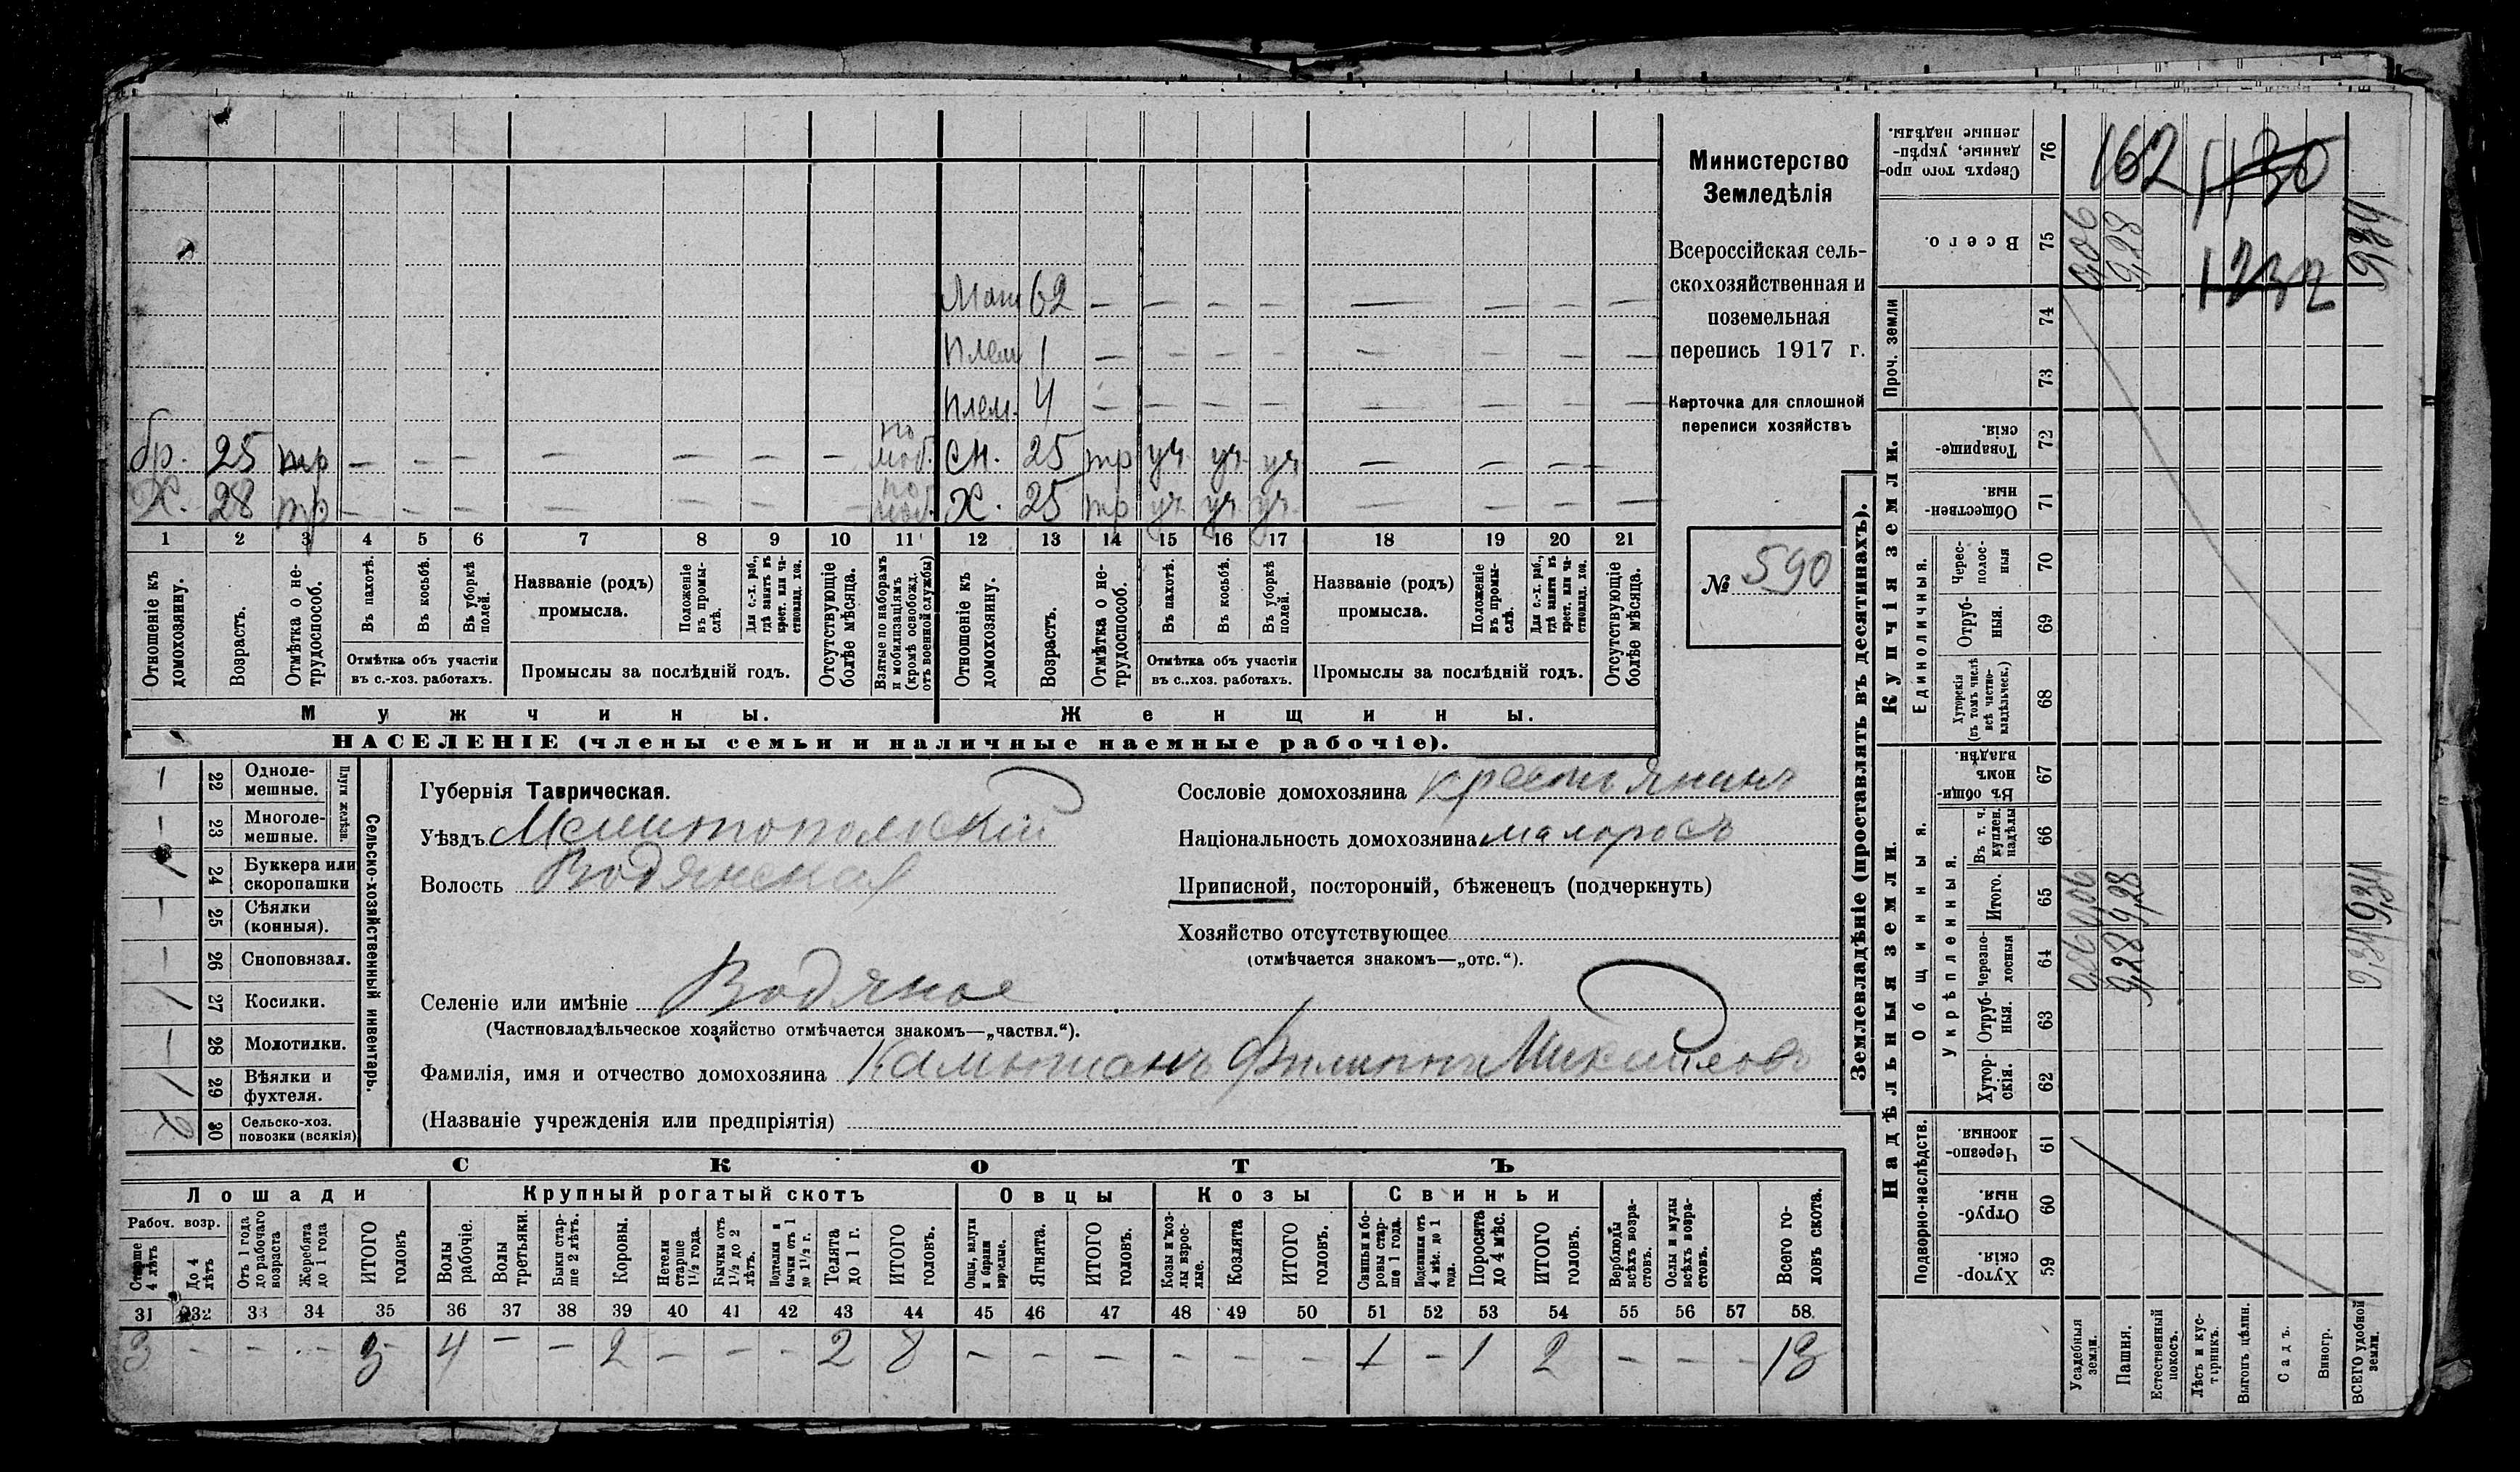 Мат 62 — — — — — — — —
Плем 1 — — — — — — — —
Плем. 4 — — — — — — — —
бр. 25 тр — — — — — — — по моб. сн. 25 тр уч. уч. уч. — — — —
Х. 28 тр. — — — — — — — по моб. Х. 25 тр уч. уч. уч. — — — —
1 2 3 4 5 6 7 8 9 10 11 12 13 14 15 16 17 18 19 20 21
Отношеніе къ домохозяину.
Возрастъ.
Отмѣтка о нетрудоспособ.
Въ пахотѣ.
Въ косьбѣ.
Въ уборкѣ полей.
Отмѣтка объ участіи
въ с.-хоз. работахъ.
Названіе (родъ)
промысла.
Положеніе въ промыслѣ.
Для с.-х. раб., гдѣ занятъ въ крест. или частновлад. хоз.
Промыслы за послѣдній годъ.
Отсутствующіе болѣе мѣсяца.
Взятые по наборамъ и мобилизаціямъ (кромѣ освобожд. отъ военной службы)
Отношеніе къ домохозяину.
Возрастъ.
Отмѣтка о нетрудоспособ.
Въ пахотѣ.
Въ косьбѣ.
Въ уборкѣ полей.
Отмѣтка объ участіи
въ с..хоз. работахъ.
Названіе (родъ)
промысла.
Положеніе въ промыслѣ.
Для с.-х. раб., гдѣ занятъ въ крест. или частновлад. хоз.
Промыслы за послѣдній годъ.
Отсутствующіе болѣе мѣсяца.
Мужчины.
Женщины.
НАСЕЛЕНІЕ (члены семьи и наличные наемные рабочіе).
Министерство
Земледѣлія
Всероссійская сель-
скохозяйственная и
поземельная
перепись 1917 г.
Карточка для сплошной
переписи хозяйствъ
№ 590
Сельско-хозяйственный инвентарь.
Плуги желѣзн.
1 22 Одноле-
мешные.
— 23 Многоле-
мешные.
1 24 Буккера или
скоропашки
— 25 Сѣялки
(конныя).
— 26 Сноповязал.
1 27 Косилки.
— 28 Молотилки.
1 29 Вѣялки и
фухтеля.
2 30 Сельско-хоз.
повозки (всякія)
Губернія Таврическая.
Уѣздъ Мелитопольскій
Волость Водянская
Селеніе или имѣніе Водяное
(Частновладѣльческое хозяйство отмѣчается знакомъ—„частвл.“).
Фамилія, имя и отчество домохозяина Камышанъ Филиппъ Михайловъ
(Названіе учрежденія или предпріятія)
Сословіе домохозяина крестьянинъ
Національность домохозяина малоросъ
Приписной, посторонній, бѣженецъ (подчеркнуть)
Хозяйство отсутствующее
(отмѣчается знакомъ—„отс.“).
СКОТЪ
Лошади
Рабоч. возр.
Старше 4 лѣтъ
До 4 лѣтъ
Отъ 1 года до рабочаго возраста
Жеребята до 1 года
ИТОГО головъ
Крупный рогатый скотъ
Волы рабочіе.
Волы третьяки.
Быки старше 2 лѣтъ.
Коровы.
Нетели старше 1½ года.
Бычки отъ 1½ до 2 лѣтъ.
Подтелки и бычки отъ 1 до 1½ г.
Телята до 1 г.
ИТОГО головъ.
Овцы
Овцы, валухи и бараны взрослые.
Ягнята.
ИТОГО головъ.
Козы
Козы и козлы взрослые.
Козлята
ИТОГО головъ.
Свиньи
Свиньи и боровы старше 1 года.
Подсвинки отъ 4 мѣс. до 1 года.
Поросята до 4 мѣс.
ИТОГО головъ.
Верблюды всѣхъ возрастовъ.
Ослы и мулы всѣхъ возрастовъ.
Всего головъ скота.
31 32 33 34 35 36 37 38 39 40 41 42 43 44 45 46 47 48 49 50 51 52 53 54 55 56 57 58.
3 — — — 3 4 — — 2 — — — 2 8 — — — — — — 1 — 1 2 — — — 13
Землевладѣніе (проставлять въ десятинахъ).
Купчія земли.
Надѣльныя земли.
Проч. земли
Единоличныя.
Общинныя.
Укрѣпленныя.
Подворно-наслѣдств.
Сверхъ того проданные, укрѣпленные надѣлы. 76
Всего. 75
74
73
Товарищескія. 72
Общественныя. 71
Чересполосныя 70
Отрубныя. 69
Хуторскія (въ томъ числѣ всѣ частновладѣльческ.) 68
Въ общинномъ владѣн. 67
Въ т. ч. куплен. надѣлы 66
Итого. 65
Черезполосныя 64
Отрубныя. 63
Хуторскія. 62
Черезполосныя. 61
Отрубныя. 60
Хуторскія. 59
162 1130
1232
0,06 9,28 9,34
0,06 9,28 9,34
0,06 9,28 9,34
Усадебныя земли.
Пашня.
Естественный покосъ.
Лѣсъ и кустарникъ.
Выгонъ цѣлин.
Садъ.
Виногр.
ВСЕГО удобной земли.